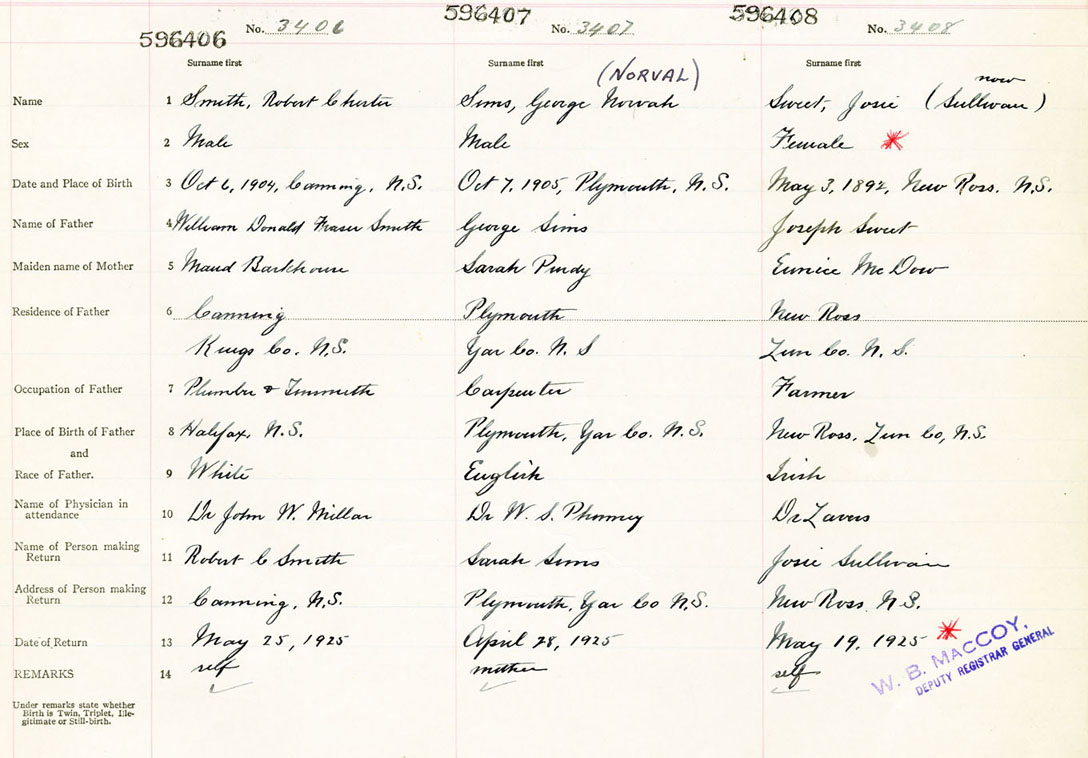 596406 No. 3406 596407 No. 3407 596408 No. 3408
Surname first Surname first (NORVAL) Surname first now
Name 1 Smith, Robert Chester Sims, George Nowah Sweet, Josie (Sullivan)
Sex 2 Male Male Female
Date and Place of Birth 3 Oct 6, 1904, Canning, N.S. Oct 7, 1905, Plymouth, N.S. May 3, 1892, New Ross. N.S.
Name of Father 4 William Donald Fraser Smith George Sims Joseph Sweet
Maiden name of Mother 5 Maud Barkhouse Sarah Purdy Eunice McDow
Residence of Father 6 Canning Plymouth New Ross
Kings Co. N.S. Yar Co. N.S Lun Co. N.S.
Occupation of Father 7 Plumber & Tinsmith Carpenter Farmer
Place of Birth of Father 8 Halifax, N.S. Plymouth, Yar Co. N.S. New Ross, Lun Co, N.S.
and
Race of Father. 9 White English Irish
Name of Physician in
attendance 10 Dr John W. Millar Dr W. S. Phinney Dr
Name of Person making
Return 11 Robert C Smith Sarah Sims Josie Sullivan
Address of Person making
Return 12 Canning, N.S. Plymouth, Yar Co N.S. New Ross. N.S.
Date of Return 13 May 25, 1925 April 28, 1925 May 19, 1925
REMARKS 14 self mother self
W. B. MACCOY,
DEPUTY REGISTRAR GENERAL
Under remarks state whether
Birth is Twin, Triplet, Ille-
gitimate or Still-birth.